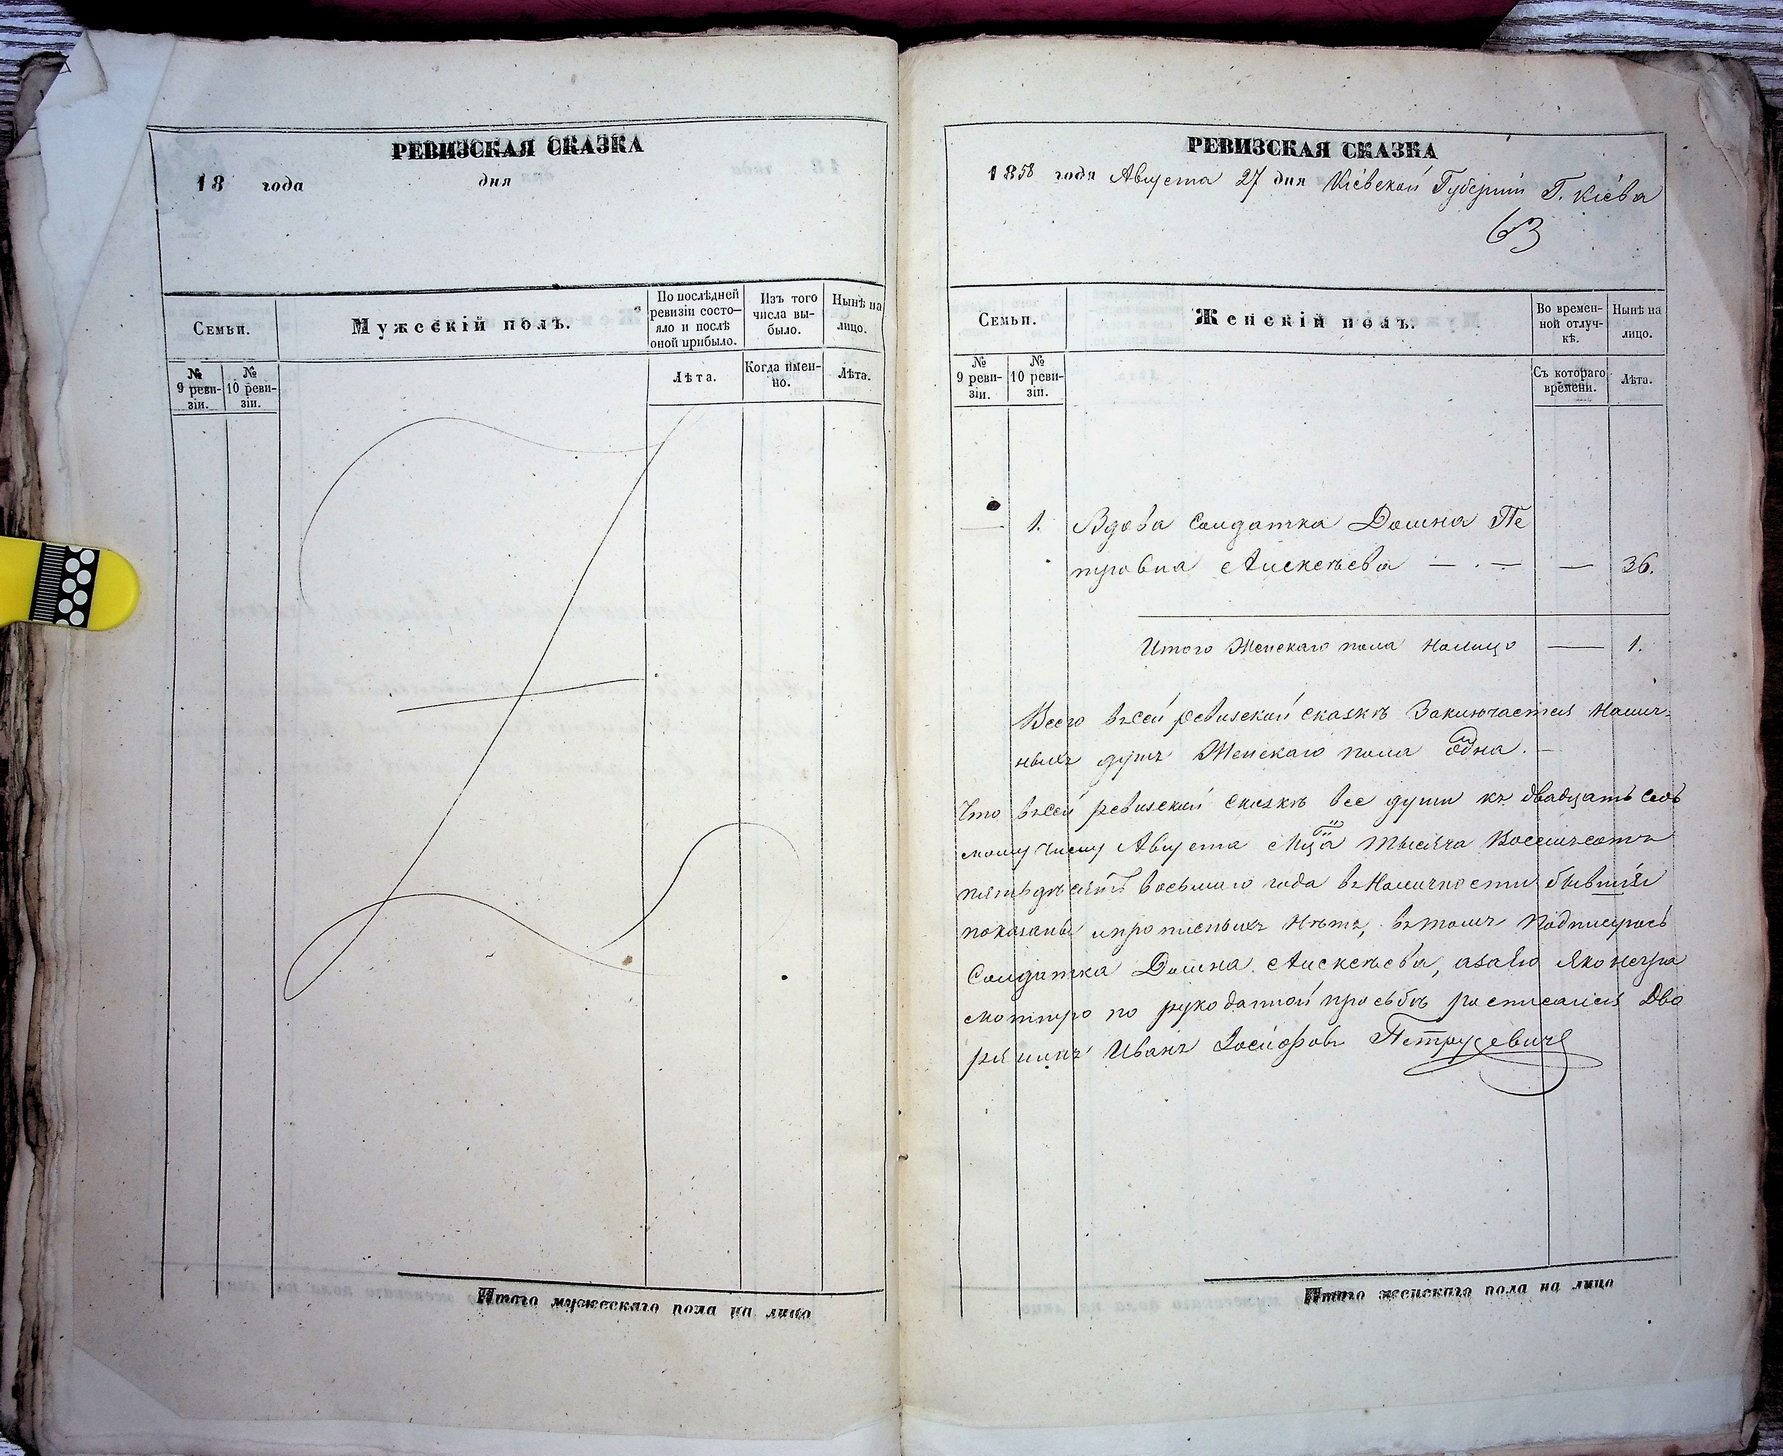 РЕВИЗСКАЯ СКАЗКА
18 года дня
Семьи.
Мужескій полъ.
По послѣдней ревизіи состо-
яло и послѣ оной прибыло.
Изъ того числа вы-
было.
Нынѣ на лицо.
№ 9 реви-
зіи.
№ 10 реви-
зіи.
Лѣта.
Когда имен-
но.
Лѣта.
Итого мужескаго пола на лицо
РЕВИЗСКАЯ СКАЗКА
1858 года Августа 27 дня Кіевской Губерніи Г. Кіева
63
Семьи.
Женскій полъ.
Во времен-
ной отлуч-
кѣ.
Нынѣ на лицо.
№ 9 реви-
зіи.
№ 10 реви-
зіи.
Съ котораго времени.
Лѣта.
— 1. Вдова Солдатка Домна Пе
тровна Алексѣева — . — — 36.
Итого Женскаго пола налицо — 1.
Всего въсей ревизской сказкѣ Заключается налич-
ныхъ душъ Женскаго пола одна. —
Что въсей ревизской сказкѣ все души къ двадцать седь
мому числу Августа мца тысяча восемьсотъ
пятьдесятъ восьмаго года въналичности бывшія
показаны ипрописныхъ нѣтъ, втомъ подписуюсь
Солдатка Домна Алексѣева, азаѣю яко неграмотную
по рукоданной просьбѣ росписался Дво
рянинъ Иванъ Іосифовъ Петрусевичъ
Итого женскаго пола на лицо